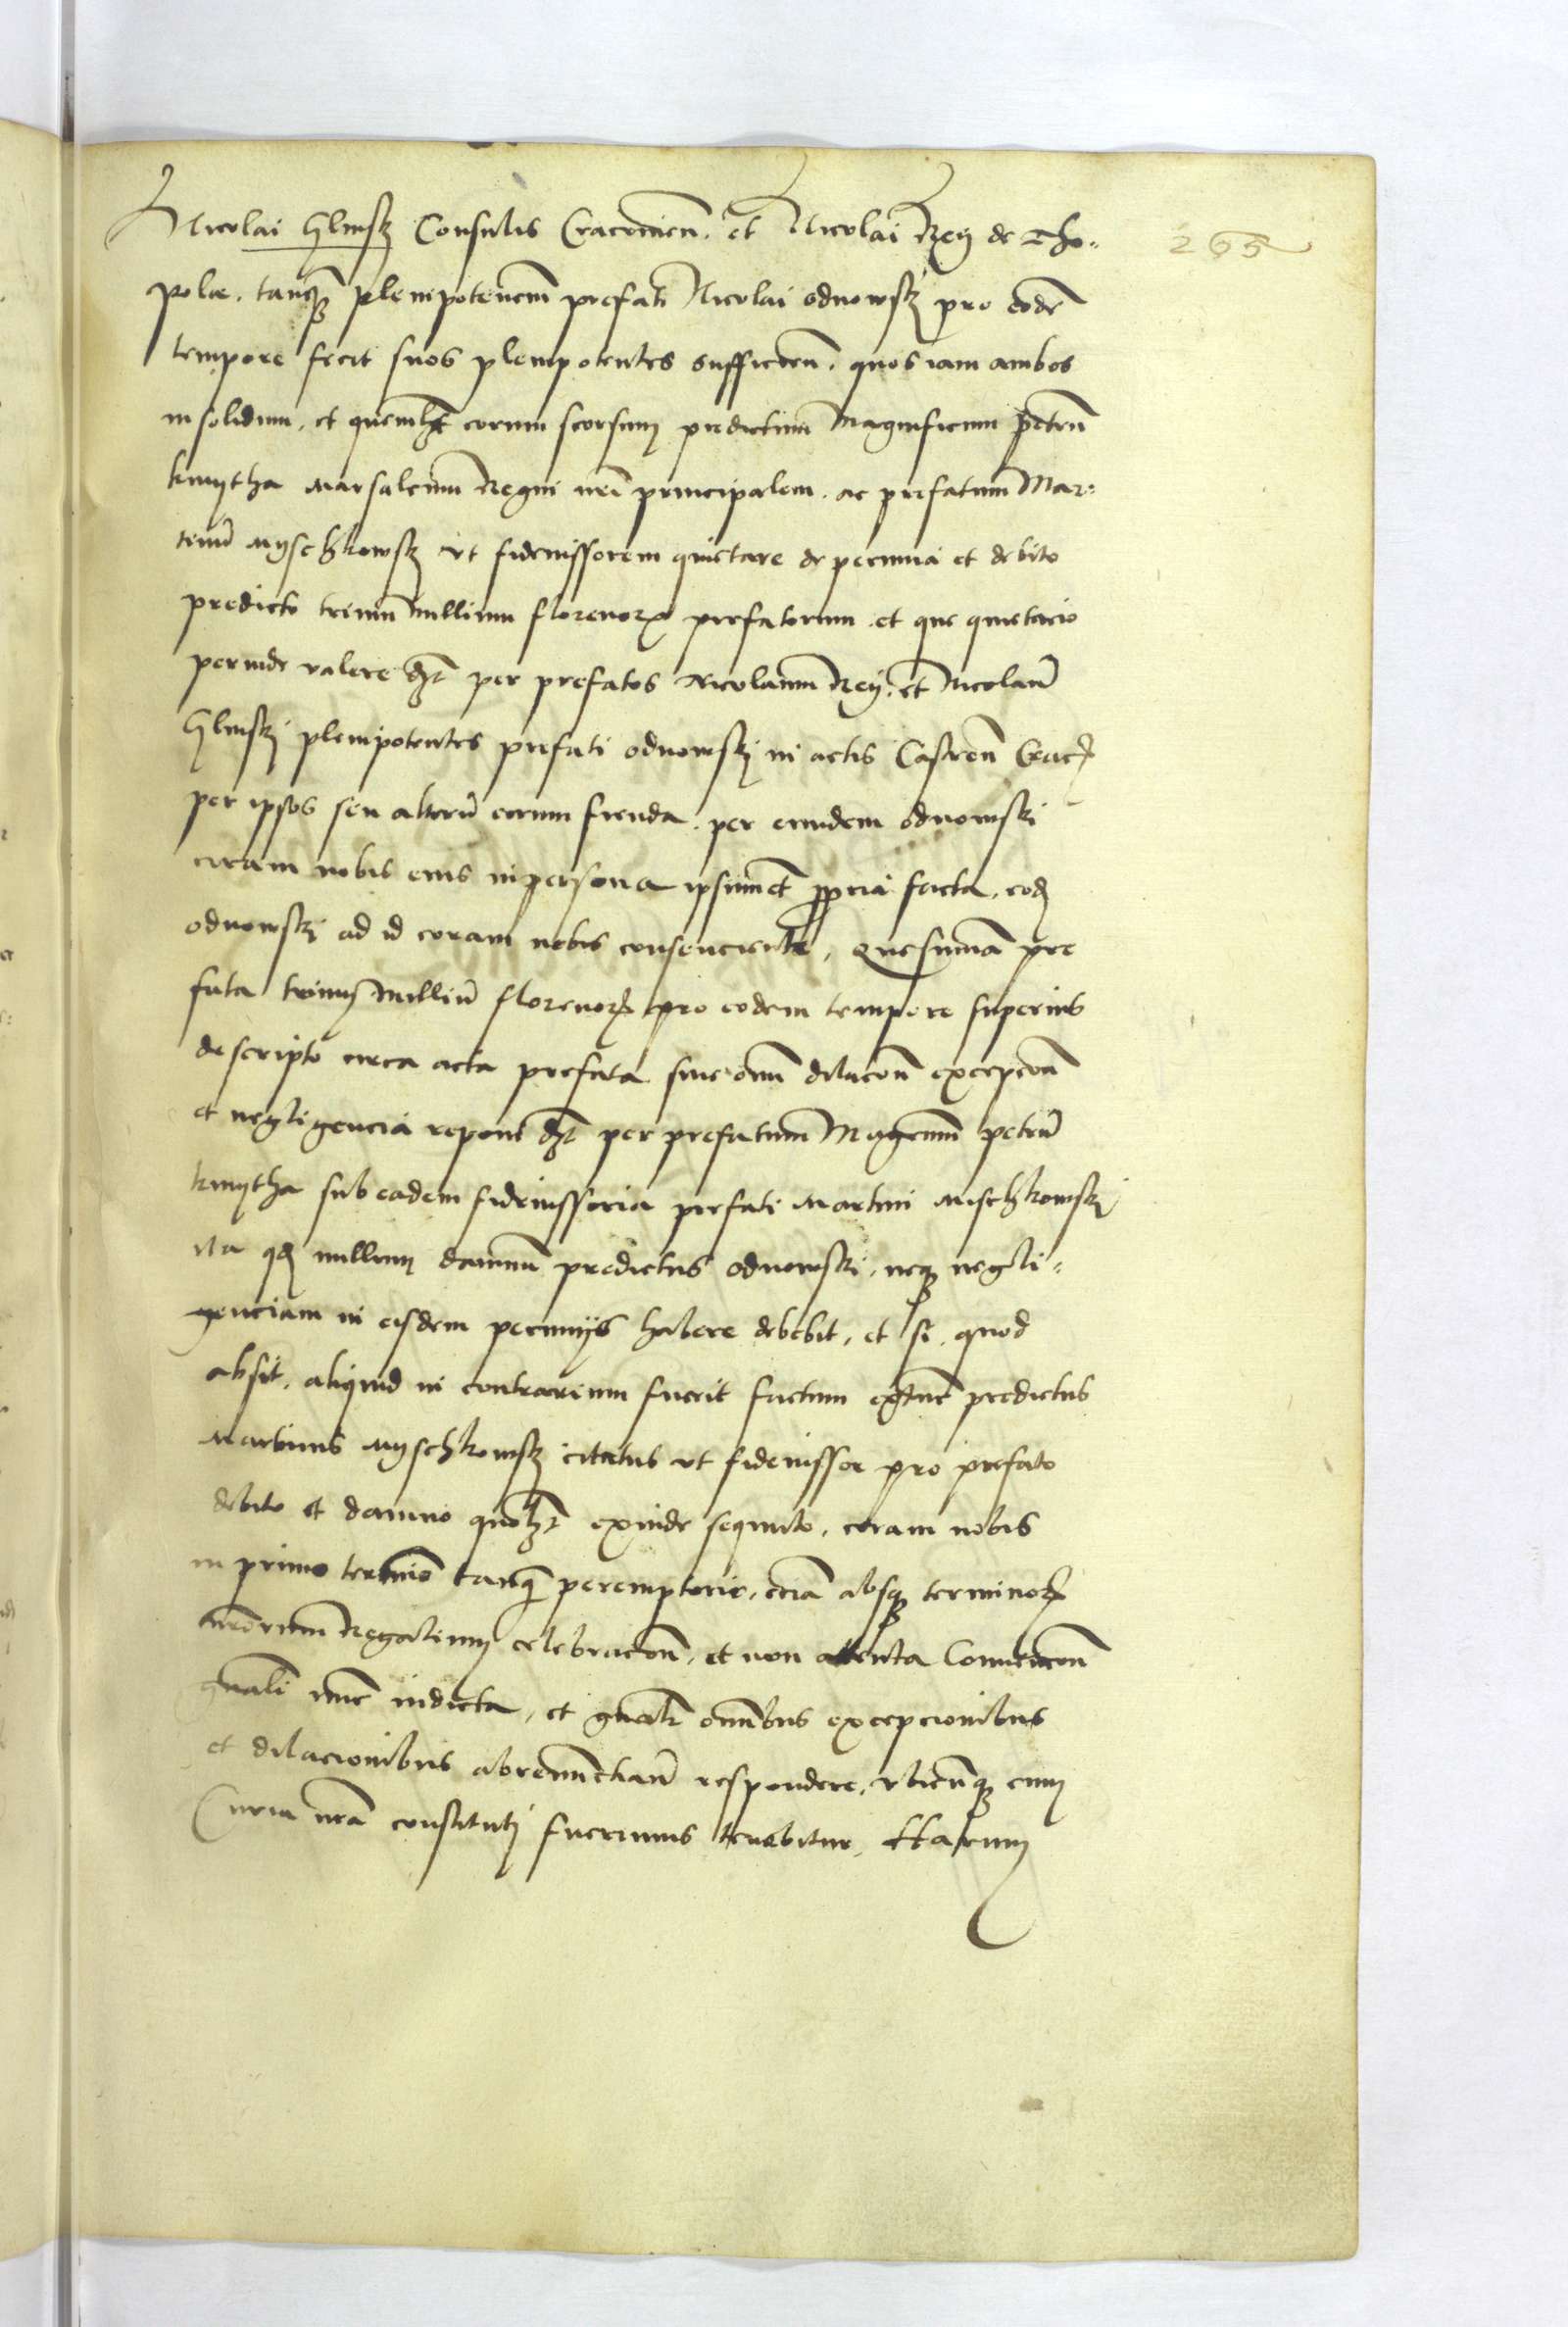 Nicolai Glinsky Consulis Cracovien. et Nicolai Rey de Tho- 265
pola. tanqua plenipotencem prefati Nicolai odnowsky pro eode
tempore fecit suos plenipotentes sufficien. quos iam ambos
insolidum. et quemlibet eorum seorsum predictum Magnificum Petru
kmytha Marsalcum Regni nri principalem. ac prefatum Mar-
tinu Myschkowsky vt fideiussorem quietare de pecunia et debito
predicto trium millium florenorum prefatorum. et que quietacio
perinde valere debet per prefatos Nicolaum Rey. et Nicolau
Glinsky plenipotentes prefati odnowsky in actis Castren Crac.
per ipsos seu alteru eorum fienda. per eundem odnowski
coram nobis eius in persona ipsiusmet propria facta. eod
odnowsky ad id coram nobis consenciente. Que summa pre
fata trium Milliu florenor. pro eodem tempore superius
descripto circa acta prefata sine omni dilacione excepcione
et negligencia reponi debet per prefatum Magcum petru
kmytha sub eadem fideiussoria prefati Martini Mischkowsky
ita quod nullum damnu predictus odnowski. neque negli-
genciam in eisdem pecunijs habere debebit. et si. quod
absit. aliquid in contrarium fuerit factum extunc predictus
Martinus Myschkowsky citatus vt fideiussor pro prefato
debito et damno quolibet exinde sequuto. coram nobis
in primo termino tanq peremptorio. eciam absque terminor.
nrorum Regalium celebracione. et non attenta Convencione
gnali tunc indicta. et gnalr omnibus excepcionibus
et dilacionibus abrenunctians respondere. vbicunque cum
Curia nra constituti fuerimus tenebitur. Harum